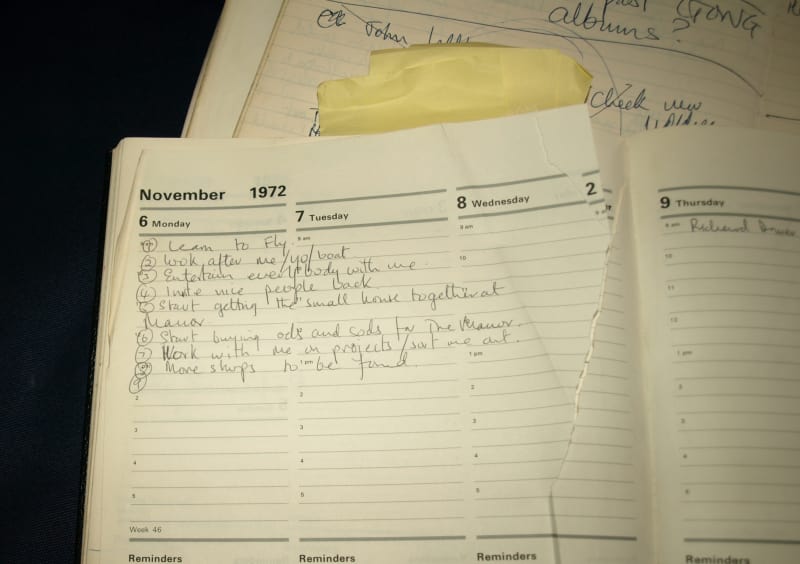 past GONG
albums?
John
Check new
November 1972
6 Monday
7 Tuesday
8 Wednesday
2
9 Thursday
9 am
9 am
9 am
9 am Richard
① Learn to Fly.
② Look after me/yo/boat
③ Entertain everybody with me.
④ Invite nice people back.
⑤ Start getting the small house together at
Manor
⑥ Start buying ods and sods for The Manor.
⑦ Work with me on projects/sort me out.
⑧ More shops to be found.
⑨
10
10
11
12
1 pm
1 pm
1 pm
2
2
2
2
3
3
3
3
4
4
4
4
5
5
5
5
Week 46
Reminders
Reminders
Reminders
Reminders